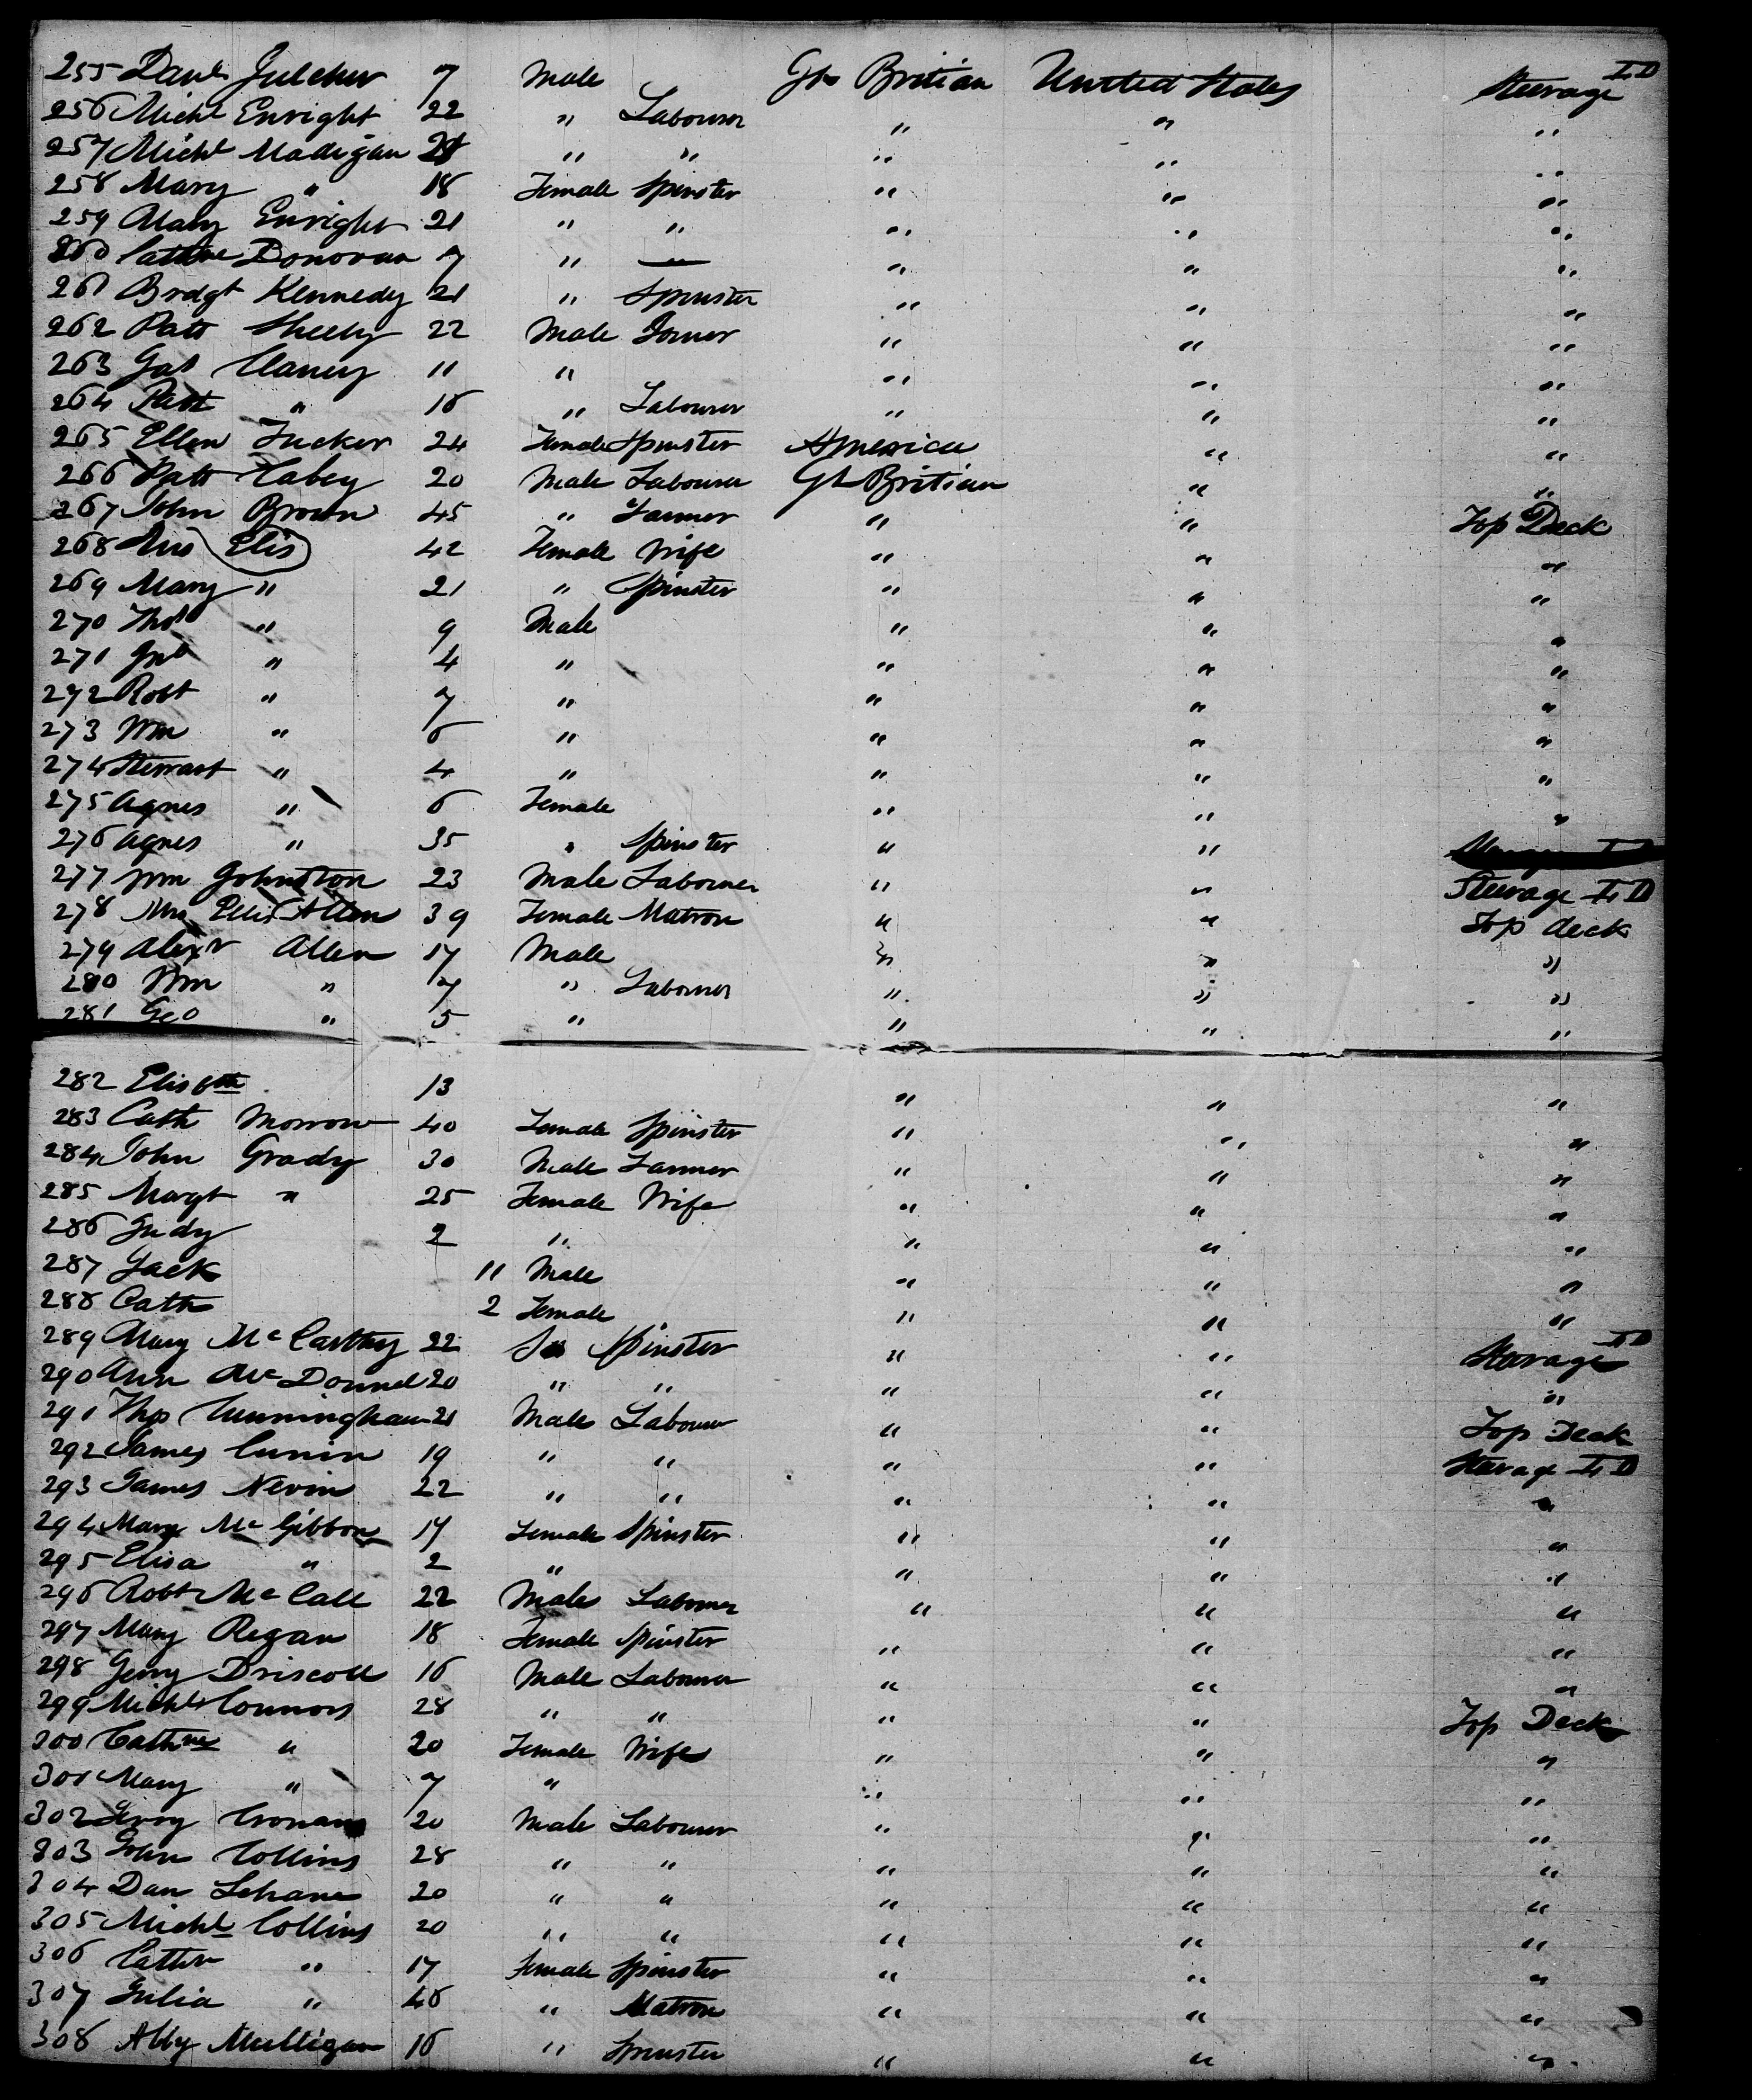 255 Danl Julcher 7 Male Gt Britian United States Steerage L D
256 Michl Enright 22 " Labourer " " "
257 Michl Madigan " " " " "
258 Mary " 18 Female Spinster " " "
259 Mary Enright 21 " " " " "
260 Donovan 7 " — " " "
261 Brdgt Kennedy 21 " Spinster " " "
262 Patt Sheehy 22 Male " " "
263 Clancy 11 " " " "
264 Patt " 16 " Labourer " " "
265 Ellen Tucker 24 Female Spinster America " "
266 Patt Cabey 20 Male Labourer Gt Britian " "
267 John Brown 45 " Farmer " " Top Deck
268 Mrs Elis 42 Female Wife " " "
269 Mary " 21 " Spinster " " "
270 Thos " 9 Male " " "
271 Jno " 4 " " " "
272 Robt " 7 " " " "
273 Wm " 6 " " " "
274 Stewart " 4 " " " "
275 Agnes " 6 Female " " "
276 Agnes " 35 " Spinster " "
277 Wm Johnston 23 Male Labourer " " Steerage L D
278 Mrs Ellis Allen 39 Female Matron " " Top deck
279 Alexr Allen 17 Male " " "
280 Wm " 7 " Labourer " " "
281 Geo " 5 " " " "
282 Elisbth 13 " " "
283 Cath Morrow 40 Female Spinster " " "
284 John Grady 30 Male Farmer " " "
285 Margt " 25 Female Wife " " "
286 Judy 2 " " " "
287 Jack 11 Male " " "
288 Cath 2 Female " " "
289 Mary McCarthy 22 Do Spinster " " Steerage L D
290 Ann McDonnel 20 " " " " "
291 Thos Cunningham 21 Male Labourer " " Top Deck
292 James Cunin 19 " " " " Steerage L D
293 James Nevin 22 " " " " "
294 Mary McGibbon 17 Female Spinster " " "
295 Elisa " 2 " " " "
296 Robt McCall 22 Male Labourer " " "
297 Mary Regan 18 Female Spinster " " "
298 Jerry Driscoll 16 Male Labourer " " "
299 Michl Connors 28 " " " " Top Deck
300 Cathne " 20 Female Wife " " "
301 Mary " 7 " " " "
302 Jerry Cronan 20 Male Labourer " " "
303 John Collins 28 " " " " "
304 Dan Lehane 20 " " " " "
305 Michl Collins 20 " " " " "
306 Cathn " 17 Female Spinster " " "
307 Julia " 46 " Matron " " "
308 Abby Mulligan 16 " Spinster " " "